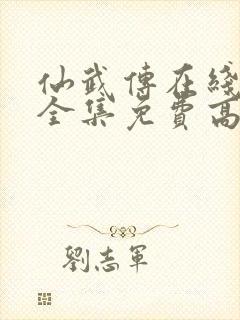 仙武傳在綫
全集免費高
劉志軍